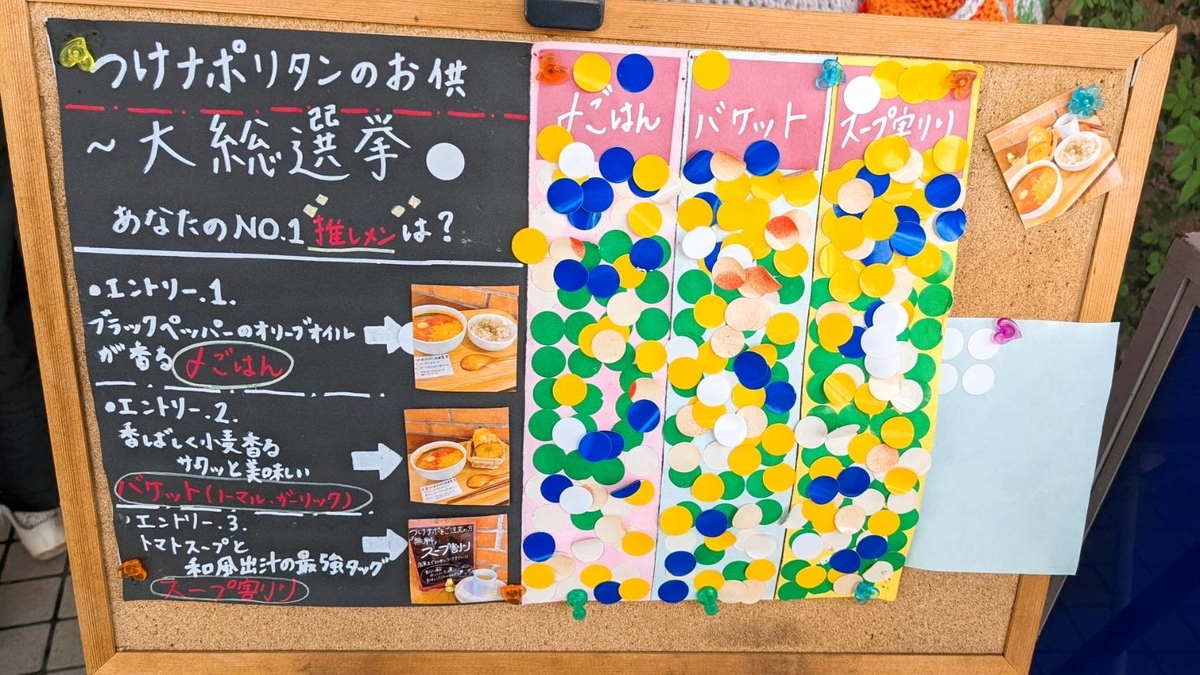 つけナポリタンのお供
~大総選挙
あなたのNO.1推しメンは?
•エントリー.1.
ブラックペッパーのオリーブオイル
が香る〆ごはん
•エントリー.2.
香ばしく小麦香る
サクッと美味しい
バケット(ノーマル.ガーリック)
エントリー.3.
トマトスープと
和風出汁の最強タッグ
スープ割り
〆ごはん
バケット
スープ割り
スープ割り